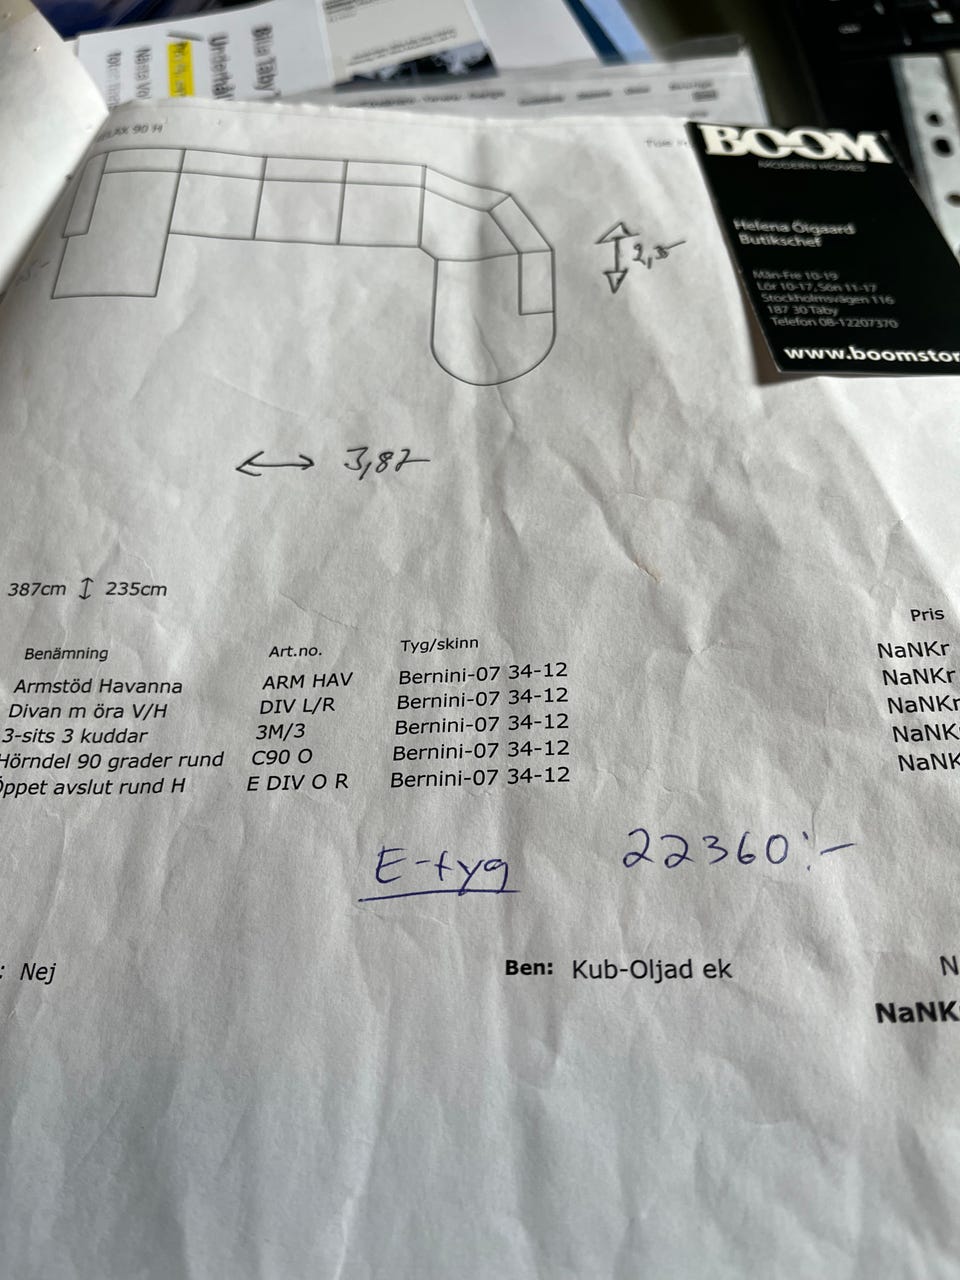 Bila Täby
90 H
BOOM
MODERN HOMES
Helena Ölgaard
Butikschef
Mån-Fre 10-19
Lör 10-17, Sön 11-17
Stockholmsvägen 116
187 30 Täby
Telefon 08-12207370
www.boomstor
3,87
387cm ↕ 235cm
Pris
Benämning Art.no. Tyg/skinn
Armstöd Havanna ARM HAV Bernini-07 34-12 NaNKr
Divan m öra V/H DIV L/R Bernini-07 34-12 NaNKr
3-sits 3 kuddar 3M/3 Bernini-07 34-12 NaNKr
Hörndel 90 grader rund C90 O Bernini-07 34-12 NaNK
Öppet avslut rund H E DIV O R Bernini-07 34-12 NaNK
E-tyg 22360:-
: Nej Ben: Kub-Oljad ek N
NaNK